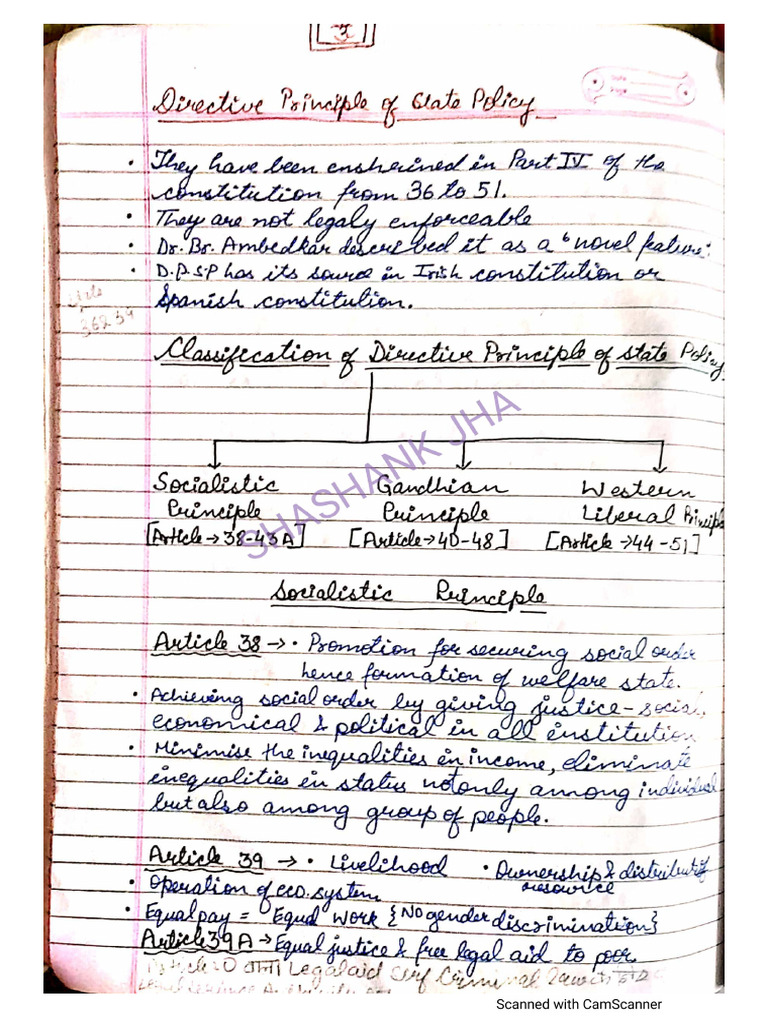 3
Directive Principle of State Policy
• They have been enshrined in Part IV of the
constitution from 36 to 51.
• They are not legaly enforceable
• Dr. Br. Ambedkar described it as a "novel feature".
• D.P.S.P has its source in Irish constitution or
Spanish constitution.
Classification of Directive Principle of state Policy
Socialistic Gandhian Western
Principle Principle Liberal Principle
[Article→38-43A] [Article→40-48] [Article→44-51]
SHASHANK JHA
Socialistic Principle
Article 38 → • Promotion for securing social order
hence formation of welfare state.
• Achieving social order by giving justice-social,
economical & political in all institution
• Minimise the inequalities in income, eliminate
inequalities in status not only among individual
but also among group of people.
Article 39 → • Livelihood • Ownership & distribution of
resource
• Operation of eco. system
• Equal pay = Equal work {No gender discrimination}
Article 39A → Equal justice & free legal aid to poor
Legal aid Criminal
Scanned with CamScanner